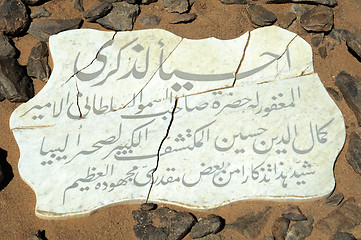 إحياءً لذكرى
المغفور له حضرة صاحب السمو السلطاني الأمير
كمال الدين حسين المكتشف الكبير لصحراء ليبيا
شيد هذا تذكارا من بعض مقدري مجهوده العظيم